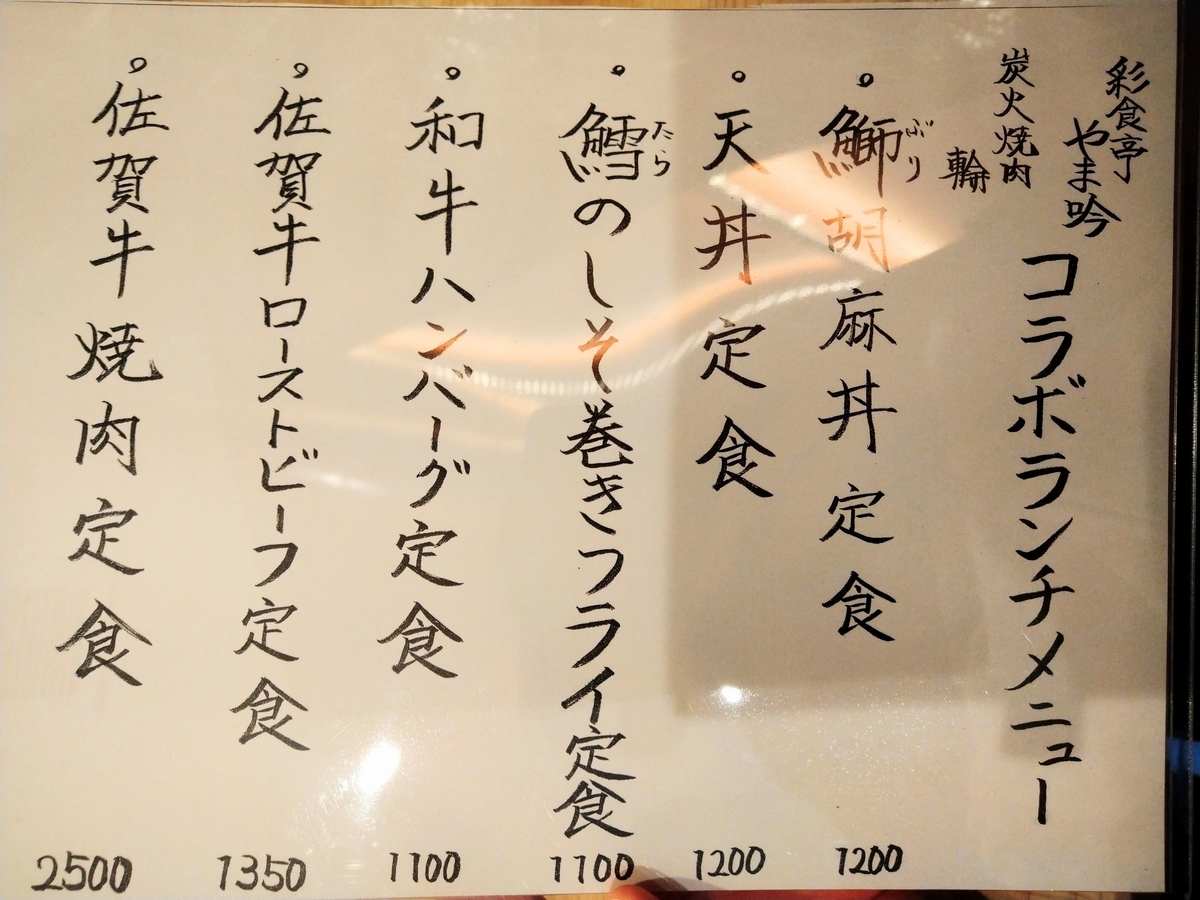 彩食亭
やま吟
炭火焼肉
輪
コラボランチメニュー
。鰤胡麻丼定食
ぶり
1200
。天丼定食
1200
。鱈のしそ巻きフライ定食
たら
1100
。和牛ハンバーグ定食
1100
。佐賀牛ローストビーフ定食
1350
。佐賀牛焼肉定食
2500